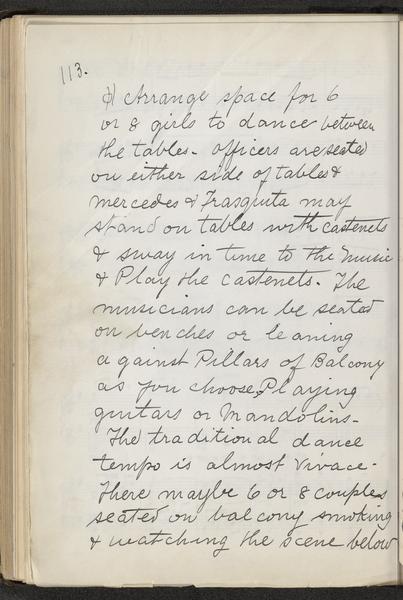 113.
φ) Arrange space for 6
or 8 girls to dance between
the tables. Officers are seated
on either side of tables &
Mercedes & Frasquita may
stand on tables with castenets
& sway in time to the music
& Play the castenets. The
musicians can be seated
on benches or leaning
against Pillars of Balcony
as you choose, Playing
guitars or Mandolins.
The traditional dance
tempo is almost Vivace.
There maybe 6 or 8 couples
seated on balcony smoking
& watching the scene below